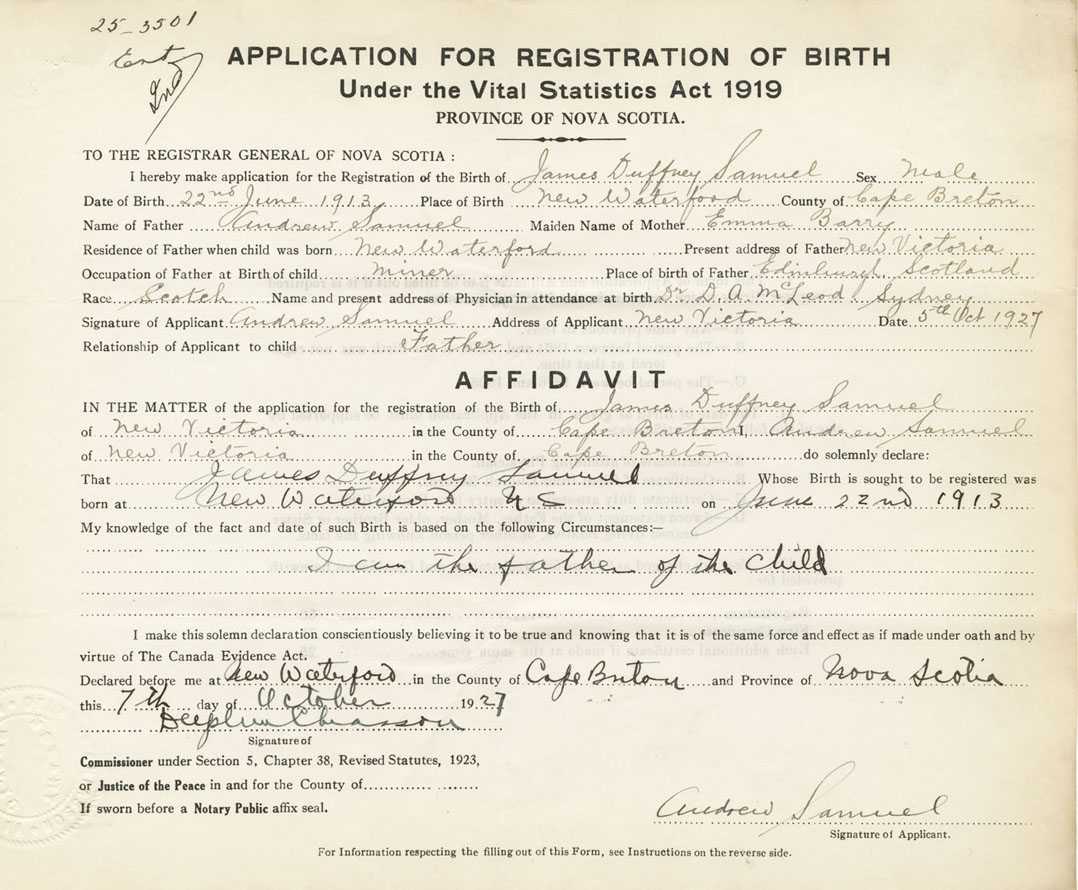 25-3501
Ent
Ind
APPLICATION FOR REGISTRATION OF BIRTH
Under the Vital Statistics Act 1919
PROVINCE OF NOVA SCOTIA.
TO THE REGISTRAR GENERAL OF NOVA SCOTIA :
I hereby make application for the Registration of the Birth of James Duffney Samuel Sex Male
Date of Birth 22nd June 1913 Place of Birth New Waterford County of Cape Breton
Name of Father Andrew Samuel Maiden Name of Mother Emma Barry
Residence of Father when child was born New Waterford Present address of Father New Victoria
Occupation of Father at Birth of child miner Place of birth of Father Edinburgh Scotland
Race Scotch Name and present address of Physician in attendance at birth Dr D. A. McLeod Sydney
Signature of Applicant Andrew Samuel Address of Applicant New Victoria Date 5th Oct 1927
Relationship of Applicant to child Father
AFFIDAVIT
IN THE MATTER of the application for the registration of the Birth of James Duffney Samuel
of New Victoria in the County of Cape Breton I, Andrew Samuel
of New Victoria in the County of Cape Breton do solemnly declare:
That James Duffney Samuel Whose Birth is sought to be registered was
born at New Waterford on June 22nd 1913
My knowledge of the fact and date of such Birth is based on the following Circumstances:—
I am the father of the child
I make this solemn declaration conscientiously believing it to be true and knowing that it is of the same force and effect as if made under oath and by
virtue of The Canada Evidence Act.
Declared before me at New Waterford in the County of Cape Breton and Province of Nova Scotia
this 7th day of October 1927
Signature of
Commissioner under Section 5, Chapter 38, Revised Statutes, 1923,
or Justice of the Peace in and for the County of
If sworn before a Notary Public affix seal.
Andrew Samuel
Signature of Applicant.
For Information respecting the filling out of this Form, see Instructions on the reverse side.